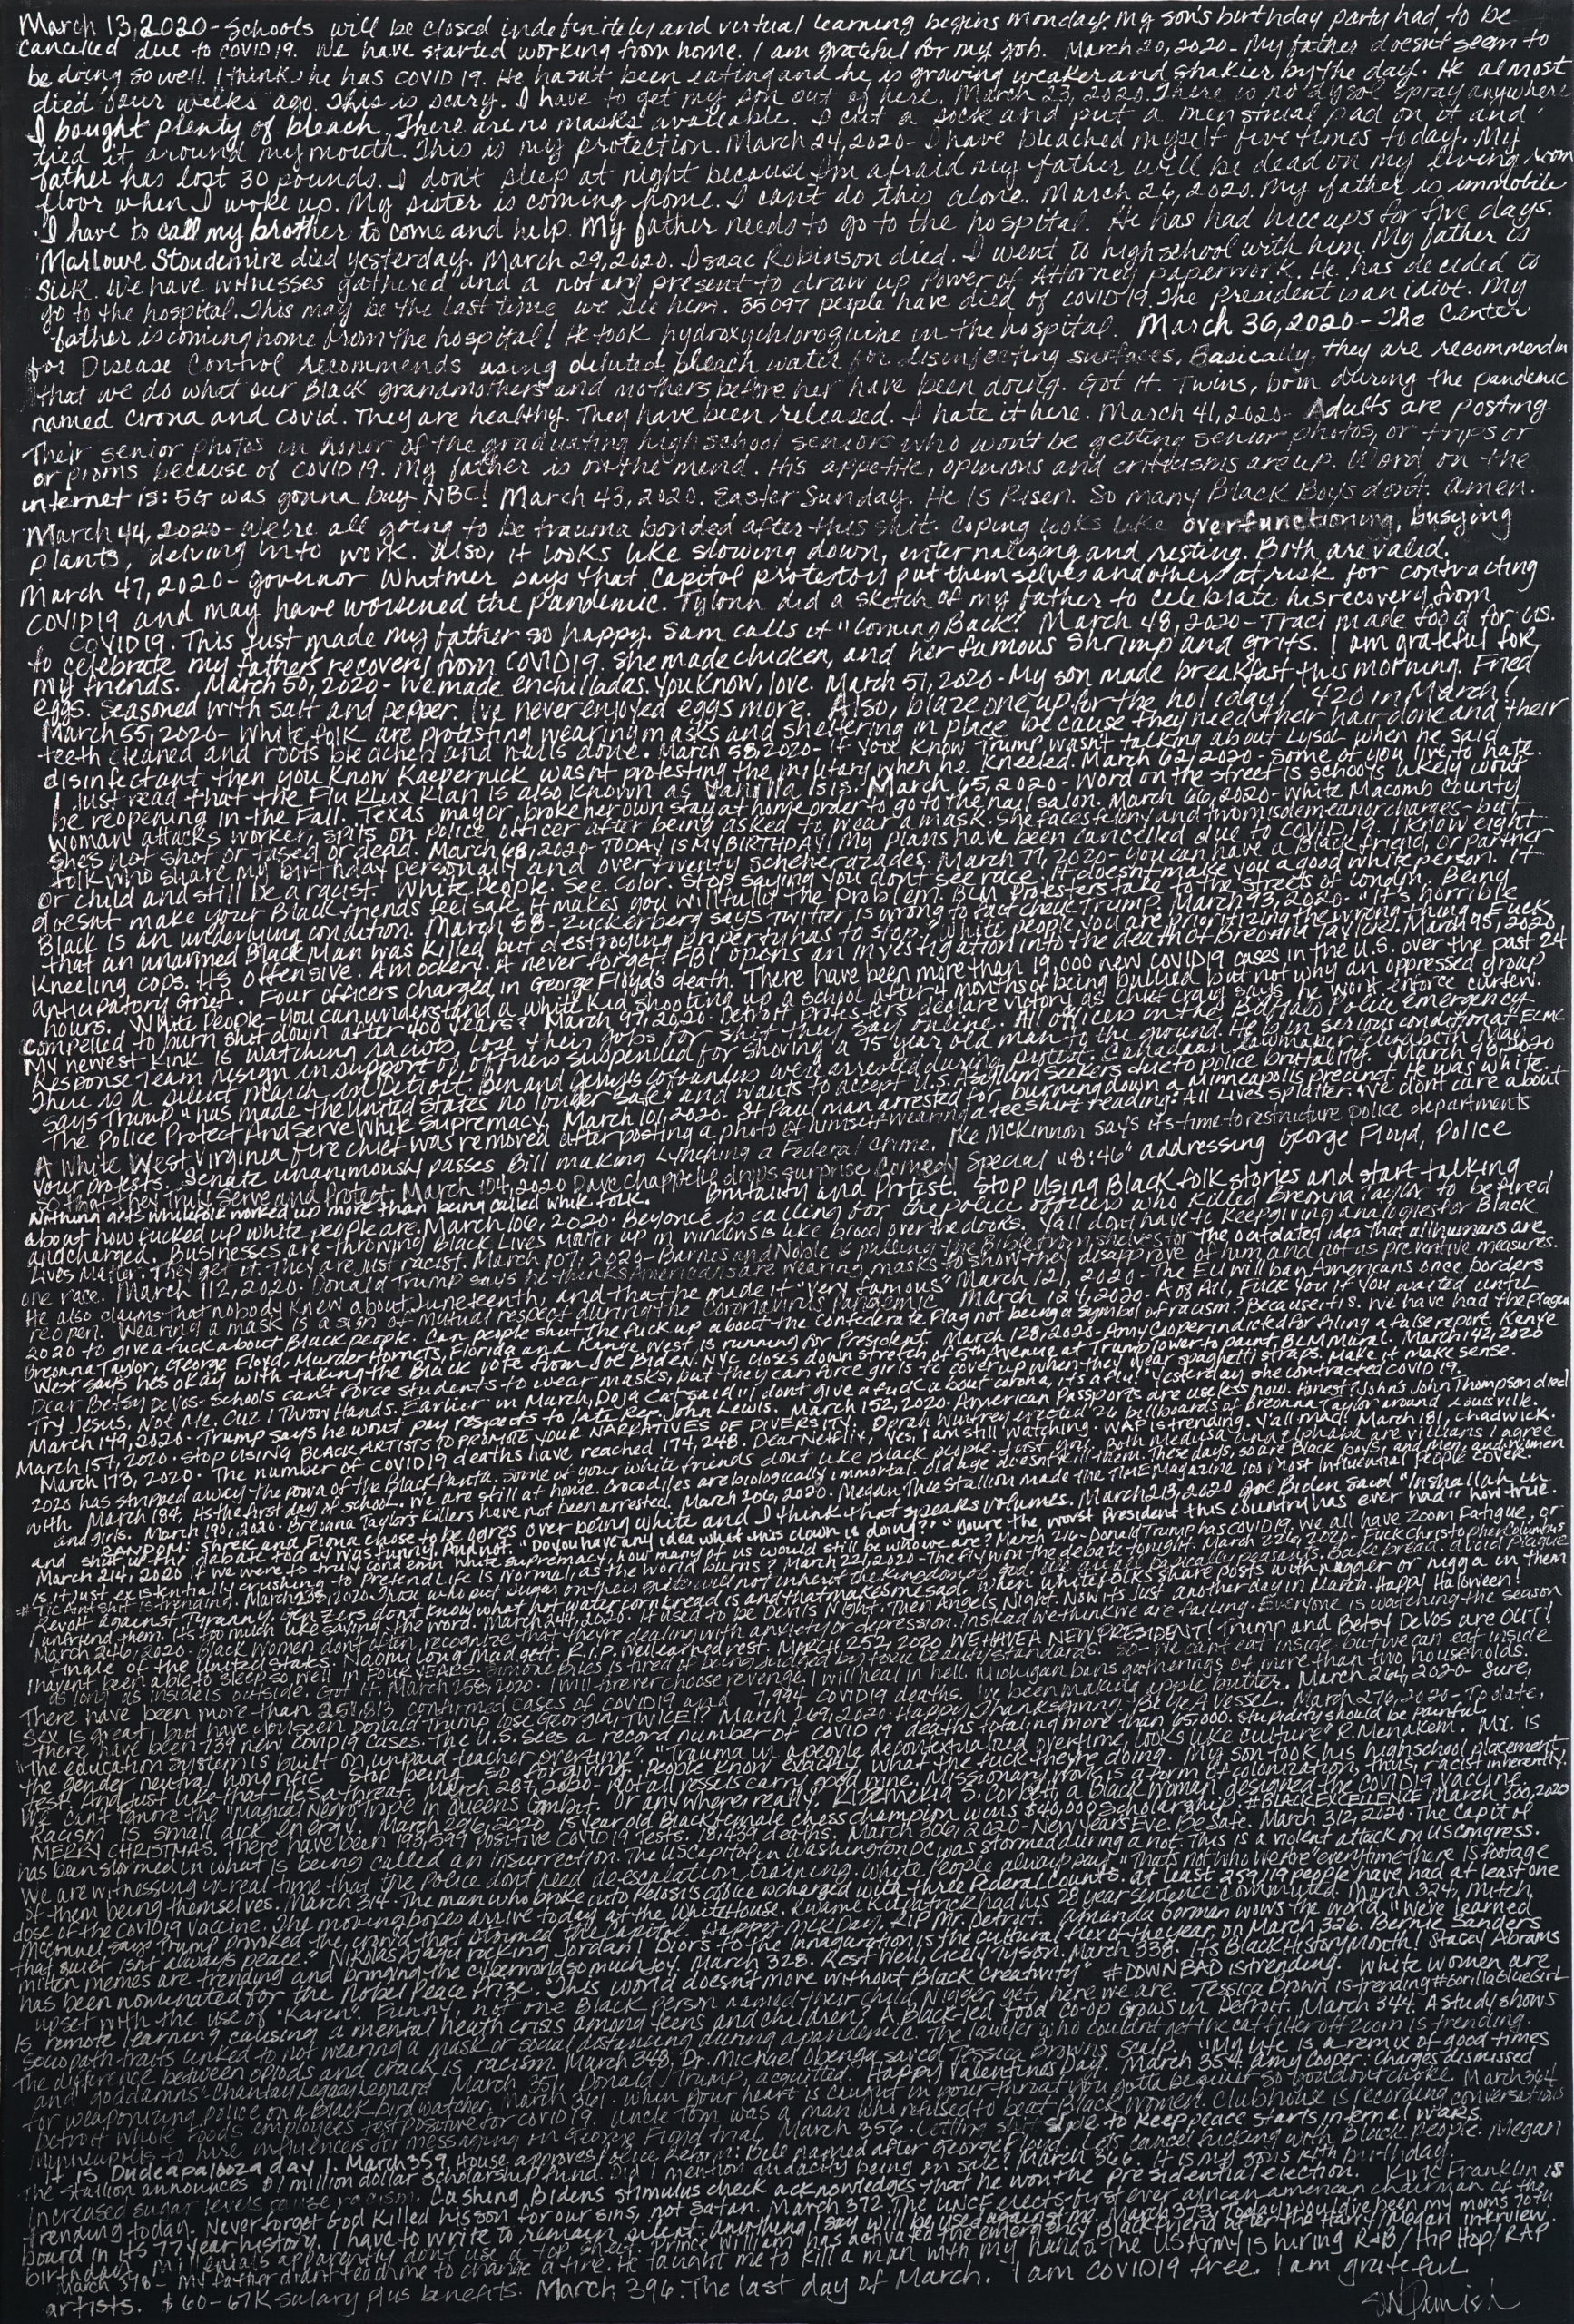 March 13, 2020 - Schools will be closed indefinitely and virtual learning begins Monday. My son's birthday party had to be
cancelled due to COVID19. We have started working from home. I am grateful for my job. March 20, 2020 - My father doesn't seem to
be doing so well. I think he has COVID19. He hasn't been eating and he is growing weaker and shakier by the day. He almost
died four weeks ago. This is scary. I have to get my son out of here. March 23, 2020. There is no lysol spray anywhere
I bought plenty of bleach. There are no masks available. I cut a sock and put a menstrual pad on it and
tied it around my mouth. This is my protection. March 24, 2020 - I have bleached myself five times today. My
father has lost 30 pounds. I don't sleep at night because I'm afraid my father will be dead on my living room
floor when I wake up. My sister is coming home. I can't do this alone. March 26, 2020. My father is immobile
I have to call my brother to come and help. My father needs to go to the hospital. He has had hiccups for five days.
Marlowe Stoudemire died yesterday. March 29, 2020. Isaac Robinson died. I went to high school with him. My father is
sick. We have witnesses gathered and a notary present to draw up Power of Attorney paperwork. He has decided to
go to the hospital. This may be the last time we see him. 35097 people have died of COVID19. The president is an idiot. My
father is coming home from the hospital! He took hydroxychloroquine in the hospital. March 36, 2020 - The Center
for Disease Control recommends using diluted bleach water for disinfecting surfaces. Basically, they are recommendin
that we do what our Black grandmothers and mothers before her have been doing. Got it. Twins, born during the pandemic
named Corona and Covid. They are healthy. They have been released. I hate it here. March 41, 2020 - Adults are posting
Their senior photos in honor of the graduating high school seniors who won't be getting senior photos, or trips or
or proms because of COVID19. My father is on the mend. His appetite, opinions and criticisms are up. Word on the
internet is: 5G was gonna buy NBC! March 43, 2020. Easter Sunday. He Is Risen. So many Black Boys don't. Amen.
March 44, 2020 - We're all going to be trauma bonded after this shit. Coping looks like overfunctioning, busying
plants, delving into work. Also, it looks like slowing down, internalizing and resting. Both are valid.
March 47, 2020 - Governor Whitmer says that Capitol protestors put themselves and others at risk for contracting
COVID19 and may have worsened the pandemic. Tylonn did a sketch of my father to celebrate his recovery from
COVID19. This just made my father so happy. Sam calls it "Coming Back". March 48, 2020 - Traci made food for us.
to celebrate my fathers recovery from COVID19. She made chicken, and her famous shrimp and grits. I am grateful for
my friends. March 50, 2020 - We made enchilladas. You know, love. March 51, 2020 - My son made breakfast this morning. Fried
eggs. Seasoned with salt and pepper. I've never enjoyed eggs more. Also, blaze one up for the holiday! 420 in March!
March 55, 2020 - White folk are protesting wearing masks and sheltering in place because they need their hair done and their
teeth cleaned and roots bleached and nails done. March 58, 2020 - If you know Trump wasn't talking about Lysol when he said
disinfectant then you know Kaepernick wasn't protesting the military when he kneeled. March 62, 2020 - Some of you live to hate.
I just read that the Flu Klux Klan is also known as Vanilla Isis. March 65, 2020 - Word on the street is schools likely won't
be reopening in the Fall. Texas mayor broke her own stay at home order to go to the nail salon. March 66, 2020 - White Macomb County
woman attacks worker, spits on police officer after being asked to wear a mask. She faces felony and two misdemeanor charges - but
she's not shot or tased or dead. March 68, 2020 - TODAY IS MY BIRTHDAY! My plans have been cancelled due to COVID19. I know eight
folk who share my birthday personally and over twenty scheherazades. March 77, 2020 - You can have a Black friend, or partner
or child and still be a racist. White People. See color. Stop saying you don't see race. It doesn't make you a good white person. It
doesn't make your Black friends feel safe. It makes you willfully the problem. BLM Protesters take to the streets of London. Being
Black is an underlying condition. March 88 - Zuckerberg says Twitter is wrong to fact check Trump. March 93, 2020 - "It's horrible
that an unarmed Black Man was killed but destroying property has to stop." White people you are prioritizing the wrong thing. Fuck
Kneeling cops. It's offensive. A mockery. A never forget. FBI opens an investigation into the death of Breonna Taylor. March 95, 2020
Anticipatory Grief. Four officers charged in George Floyd's death. There have been more than 19,000 new COVID19 cases in the U.S. over the past 24
hours. White People - you can understand a white kid shooting up a school after 4 months of being bullied but not why an oppressed group
compelled to burn shit down after 400 years? March 97, 2020 - Detroit protesters declare victory as Chief Craig says he won't enforce curfew.
My newest Kink is watching racists lose their jobs for shit they say online. All officers in the Buffalo Police emergency
Response Team resign in support of officers suspended for shoving a 75 year old man to the ground. He is in serious condition at ECMC
There is a silent march in Detroit. Ben and Jerry's cofounders were arrested during protest. Canadian lawmaker Elizabeth May
says Trump "has made the United States no longer safe" and wants to accept U.S. Asylum seekers due to police brutality. March 98, 2020
The Police Protect And Serve White Supremacy. March 101, 2020 - St Paul man arrested for burning down a Minneapolis precinct. He was white.
A White West Virginia fire chief was removed after posting a photo of himself wearing a tee shirt reading: All Lives Splatter. We don't care about
your protests. Senate unanimously passes Bill making Lynching a Federal Crime. Ike McKinnon says it's time to restructure police departments
so that they truly Serve and Protect. March 104, 2020 Dave Chappelle drops surprise Comedy Special "8:46" addressing George Floyd, Police
Nothing gets white folk worked up more than being called white folk. Brutality and Protest. Stop Using Black folk stories and start talking
about how fucked up white people are. March 106, 2020. Beyoncé is calling for the police officers who killed Breonna Taylor to be fired
and charged. Businesses are throwing Black Lives Matter up in windows like blood over the doors. Yall don't have to keep giving analogies for Black
Lives Matter. They get it. They are just racist. March 107, 2020 - Barnes and Noble is pulling the Bible from shelves for the outdated idea that all humans are
one race. March 112, 2020. Donald Trump says he thinks Americans are wearing masks to show they disapprove of him and not as preventive measures.
He also claims that nobody knew about Juneteenth, and that he made it "very famous" March 121, 2020 - The EU will ban Americans once borders
reopen. Wearing a mask is a sign of mutual respect during the Coronavirus Pandemic. March 124, 2020 - A of All, Fuck You if you waited until
2020 to give a fuck about Black people. Can people shut the fuck up about the Confederate Flag not being a symbol of racism? Because it is. We have had the Plague
Breonna Taylor, George Floyd, Murder Hornets, Florida and Kanye West is running for President. March 128, 2020 - Amy Cooper indicted for filing a false report. Kanye
West says he's okay with taking the Black vote from Joe Biden. NYC closes down stretch of 5th Avenue at Trump Tower to paint BLM mural. March 142, 2020
Dear Betsy DeVos - Schools can't force students to wear masks, but they can force girls to cover up when they wear spaghetti straps. Make it make sense.
Try Jesus, Not Me. Cuz I Throw Hands. Earlier in March, Doja Cat said "I don't give a fuck about corona, it's a flu." Yesterday she contracted COVID19.
March 149, 2020. Trump says he won't pay respects to late Rep. John Lewis. March 152, 2020. American Passports are useless now. John Thompson died
March 157, 2020. STOP USING BLACK ARTISTS TO PROMOTE YOUR NARRATIVES OF DIVERSITY. Oprah Winfrey erected 26 billboards of Breonna Taylor around Louisville.
March 173, 2020. The number of COVID19 deaths have reached 174,248. Dear Netflix, Yes, I am still watching. WAP is trending. Y'all mad! March 181, Chadwick.
2020 has stripped away the powa of the Black Panta. Some of your white friends don't like Black people. Just you. Both Medusa and Elphaba are villians I agree
with. March 184. It's the first day of school. We are still at home. Crocodiles are biologically immortal. Old age doesn't kill them. These days, so are Black boys, and men, and women
and girls. March 190, 2020. Breonna Taylor's Killers have not been arrested. March 206, 2020. Megan Thee Stallion made the TIME Magazine 100 Most Influential People cover.
RANDOM: Shrek and Fiona chose to be ogres over being white and I think that speaks volumes. March 213, 2020 Joe Biden said "Inshallah in
and shut up the debate today was funny. And not. "Do you have any idea what this clown is doing?" "You're the worst President this country has ever had" how true.
March 214, 2020 If we were to truly condemn white supremacy, how many of us would still be who we are? March 216 - Donald Trump has COVID19. We all have Zoom Fatigue, or
is it just existentially crushing to pretend Life is Normal, as the world burns? March 221, 2020 - The fly won the debate tonight. March 226, 2020 - Fuck Christopher Columbus
trending. March 238, 2020 Those who put sugar on their grits will not inherit the Kingdom of God. We are basically peasants. Bake bread. Avoid Plague
Revolt against Tyranny. Gen Zers don't know what hot water cornbread is and that makes me sad. When white folks share posts with nigger or nigga in them
I unfriend them. It's too much like saying the word. March 244, 2020. It used to be Devils Night. Then Angels Night. Now it's just another day in March. Happy Halloween!
March 246, 2020 Black Women don't often recognize that they're dealing with anxiety or depression. Instead we think we are failing. Everyone is watching the season
finale of the United States. Naomi Long Madgett. R.I.P. Well earned rest. MARCH 252, 2020 WE HAVE A NEW PRESIDENT! Trump and Betsy DeVos are OUT!
I haven't been able to sleep so well in FOUR YEARS. Simone Biles is tired of being judged by toxic beauty standards. So - We can't eat inside but we can eat inside
as long as inside is outside. Got it. March 258, 2020. I will forever choose revenge. I will heal in hell. Michigan bans gatherings of more than two households.
There have been more than 251,813 confirmed cases of COVID19 and 7,994 COVID19 deaths. I've been making apple butter. March 264, 2020 - Sure,
sex is great, but have you seen Donald Trump lose Georgia, TWICE!? March 269, 2020. Happy Thanksgiving. Be Ye A Vessel. March 276, 2020 - To date,
there have been 739 new COVID19 cases. The U.S. sees a record number of COVID19 deaths totaling more than 65,000. Stupidity should be painful.
"The education system is built on unpaid teacher overtime" "Trauma in a people decontextualized overtime, looks like culture" R. Menakem. Mx. is
the gender neutral honorific. Stop being so forgiving. People know exactly what the fuck they're doing. My son took his high school placement
test. And just like that - He's a threat. March 287, 2020 - Not all vessels carry good wine. Missionary work is a form of colonization, thus, racist inherently.
We can't ignore the "Magical Negro" trope in Queens Gambit. Or anywhere really. Kizzmekia S. Corbett, a Black Woman designed the COVID19 Vaccine.
Racism is small dick energy. March 296, 2020 15 year old Black female chess champion wins $40,000 scholarship. #BLACKEXCELLENCE March 300, 2020
MERRY CHRISTMAS. There have been 193,599 positive COVID19 Tests. 18,439 deaths. March 306, 2020 - New Years Eve. Be Safe. March 312, 2020. The Capitol
has been stormed in what is being called an insurrection. The US Capitol in Washington DC was stormed during a riot. This is a violent attack on US Congress.
We are witnessing in real time that the Police don't need deescalation training. White People always say, "That's not who we are" everytime there is footage
of them being themselves. March 314. The man who broke into Pelosis office is charged with three Federal Counts. At least 259,119 people have had at least one
dose of the COVID19 Vaccine. The moving boxes arrive today at the White House. Kwame Kilpatrick had his 28 year sentence commuted. March 324, Mitch
McConnel says Trump provoked the crowd that stormed the Capitol. Happy MLK Day. RIP Mr. Detroit. Amanda Gorman wows the world. "We've learned
that quiet isn't always peace." Nikolas Ajagu rocking Jordan 1 Diors to the Innaguration is the cultural flex of the year, on March 326. Bernie Sanders
mitten memes are trending and bringing the cyberworld so much joy. March 328. Rest Well, Cicely Tyson. March 338. It's Black History Month! Stacey Abrams
has been nominated for the Nobel Peace Prize. "This world doesn't move without Black Creativity" #DOWNBAD is trending. White women are
upset with the use of "Karen". Funny, not one Black Person named their child Nigger, yet, here we are. Tessica Brown is trending #GorillaGlueGirl
Is remote learning causing a mental health crisis among teens and children? A Black-led food co-op Grows in Detroit. March 344. A study shows
sociopath traits linked to not wearing a mask or social distancing during a pandemic. The lawyer who couldn't get the cat filter off Zoom is trending.
The difference between opiods and crack is racism. March 348, Dr. Michael Obeng saved Tessica Browns Scalp. "My life is a remix of good times
and goddamns" Chantay Legacy Leonard. March 351, Donald Trump, acquitted. Happy Valentines Day. March 354 Amy Cooper: Charges dismissed
for weaponizing police on a Black bird watcher. March 361. When your heart is caught in your throat you gotta be quiet so you don't choke. March 364
Detroit Whole Foods employees test positive for COVID19. Uncle Tom was a man who refused to beat Black women. Clubhouse is recording conversations
Minneapolis to hire influencers for messaging on George Floyd trial. March 356. to keep peace starts internal wars.
It is Dudeapalooza day 1. March 359, House approves Police Reform: Bill named after George Floyd. Lets cancel fucking with Black People. Megan
The Stallion announces $1 million dollar scholarship fund. Did I mention audacity being on sale? March 366. It is my son's 14th birthday.
Increased sugar levels cause racism. Cashing Bidens stimulus check acknowledges that he won the presidential election. Kirk Franklin is
trending today. Never forget God killed his son for our sins, not Satan. March 372 The UNCF elects first ever african american chairman of the
board in its 77 year history. I have to write to remain silent. Anything I say will be used against me. March 373 Today would've been my moms 70th
birthday. Millenials apparently don't use a top sheet. Prince William has activated the emergency Black friend after the Harry/Megan interview.
March 378 - My father didn't teach me to change a tire. He taught me to kill a man with my hands. The US Army is hiring R&B/Hip Hop/RAP
artists. $60-67K salary plus benefits. March 396 - The last day of March. I am COVID19 free. I am grateful.